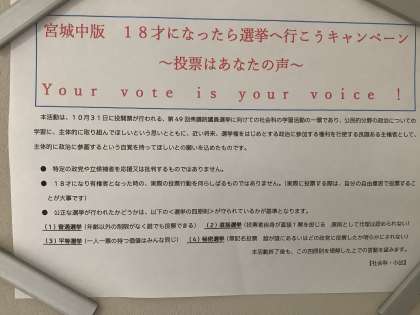 宮城中版　１８才になったら選挙へ行こうキャンペーン
～投票はあなたの声～
Your vote is your voice !
本活動は、１０月３１日に投開票が行われる、第49回衆議院議員選挙に向けての社会科の学習活動の一環であり、公民的分野の政治についての
学習に、主体的に取り組んでほしいという思いとともに、近い将来、選挙権をはじめとする政治に参加する権利を行使する良識ある主権者として、
主体的に政治に参画するという自覚を持ってほしいとの願いを込めたものです。
● 特定の政党や立候補者を応援又は批判するものではありません。
● １８才になり有権者となった時の、実際の投票行動を何らしばるものではありません。（実際に投票する際は、自分の自由意思で投票するこ
とが大事です）
● 公正な選挙が行われたかどうかは、以下の＜選挙の四原則＞が守られているかが基準となります。
（１）普通選挙（年齢以外の制限がなく誰でも投票できる）（２）直接選挙（投票者自身が直接１票を投じる　原則として代理は認められない）
（３）平等選挙（一人一票の持つ価値はみんな同じ）（４）秘密選挙（無記名投票　誰が誰にあるいはどの政党に投票したか明らかにされない）
本活動終了後も、この四原則を理解した上での言動を望みます。
【社会科・小出】